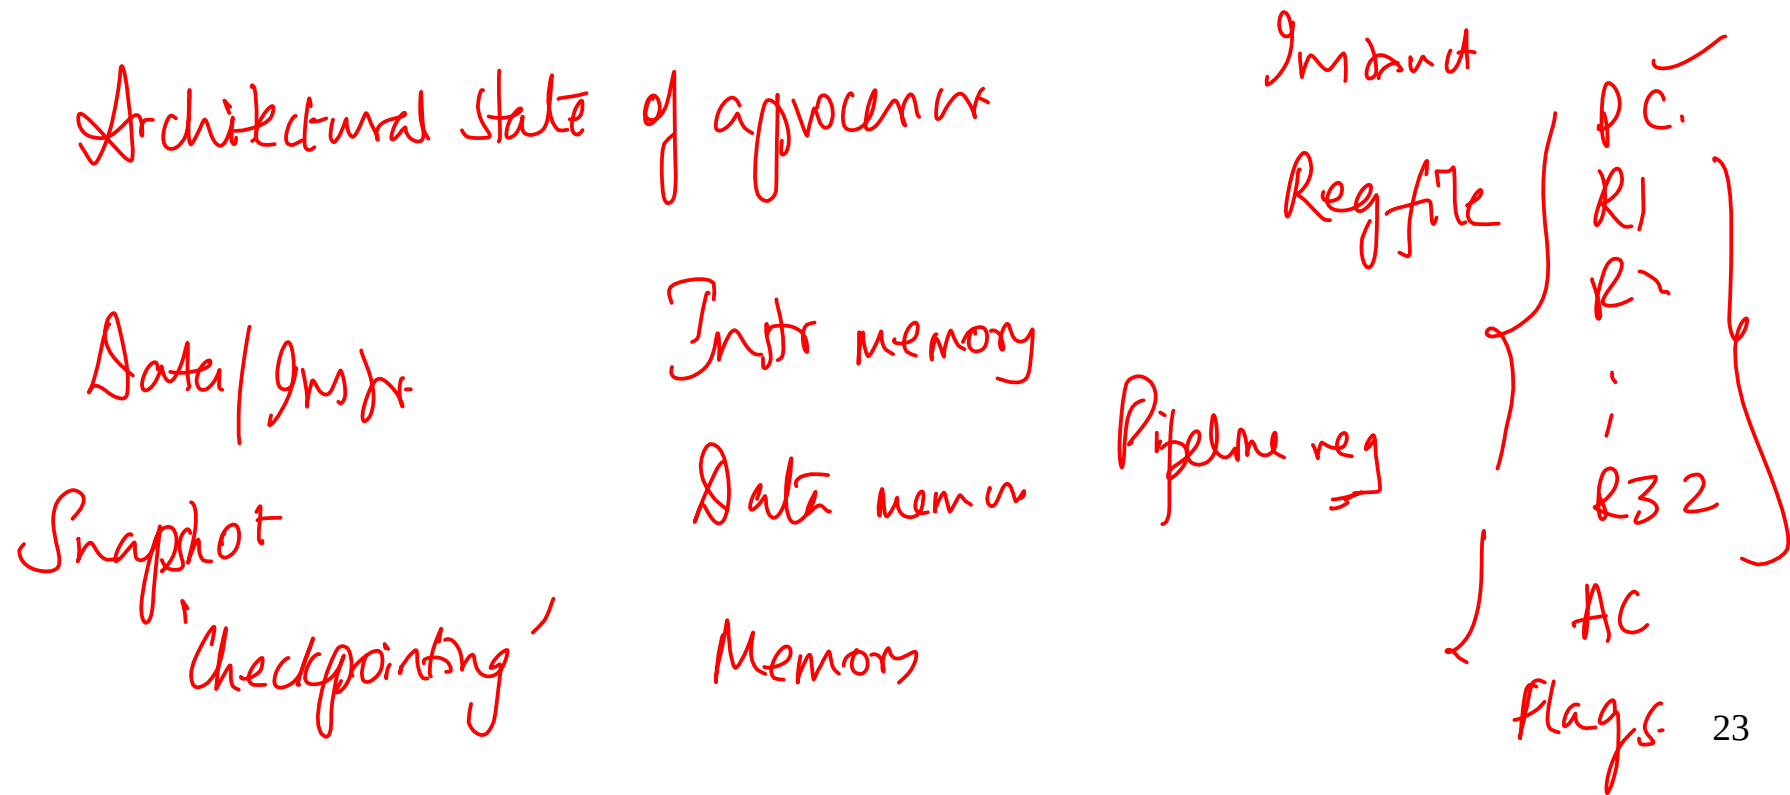 Architectural state of a processor
Instruct
PC.
Reg file
R1
R2
Data/Instr.
Instr memory
Pipeline reg
Snapshot
Data memor
R32
'Checkpointing'
Memory
AC
Flags
23